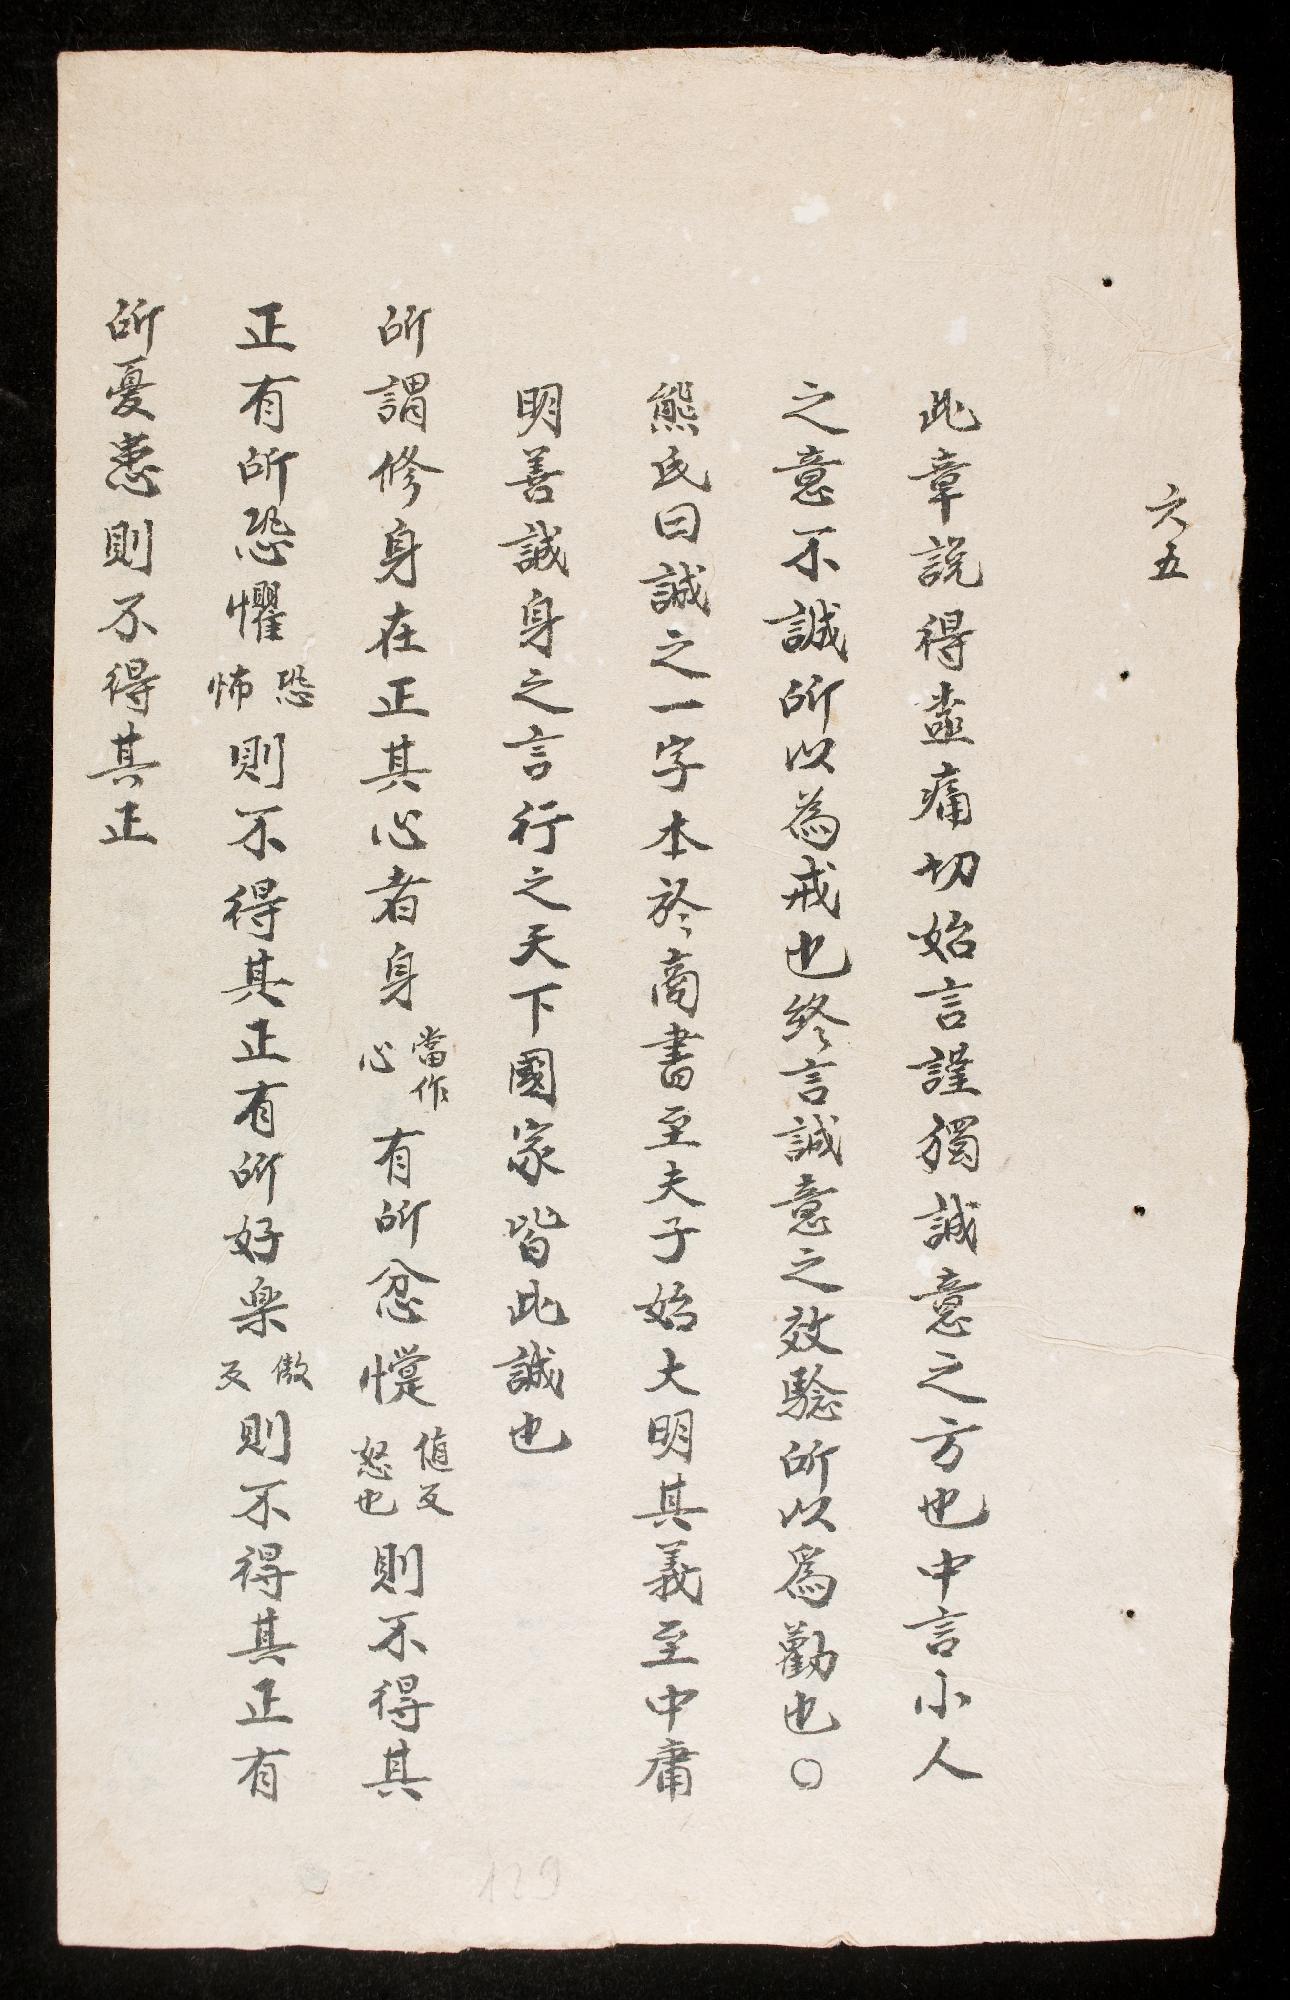 六五
此章説得盡痛切始言謹獨誠意之方也中言小人
之意不誠所以為戒也終言誠意之效驗所以爲勸也○
熊氏曰誠之一字本於商書至夫子始大明其義至中庸
明善誠身之言行之天下國家皆此誠也
所謂修身在正其心者身當作心有所忿懥値反怒也則不得其
正有所恐懼恐怖則不得其正有所好楽傲反則不得其正有
所憂患則不得其正
129